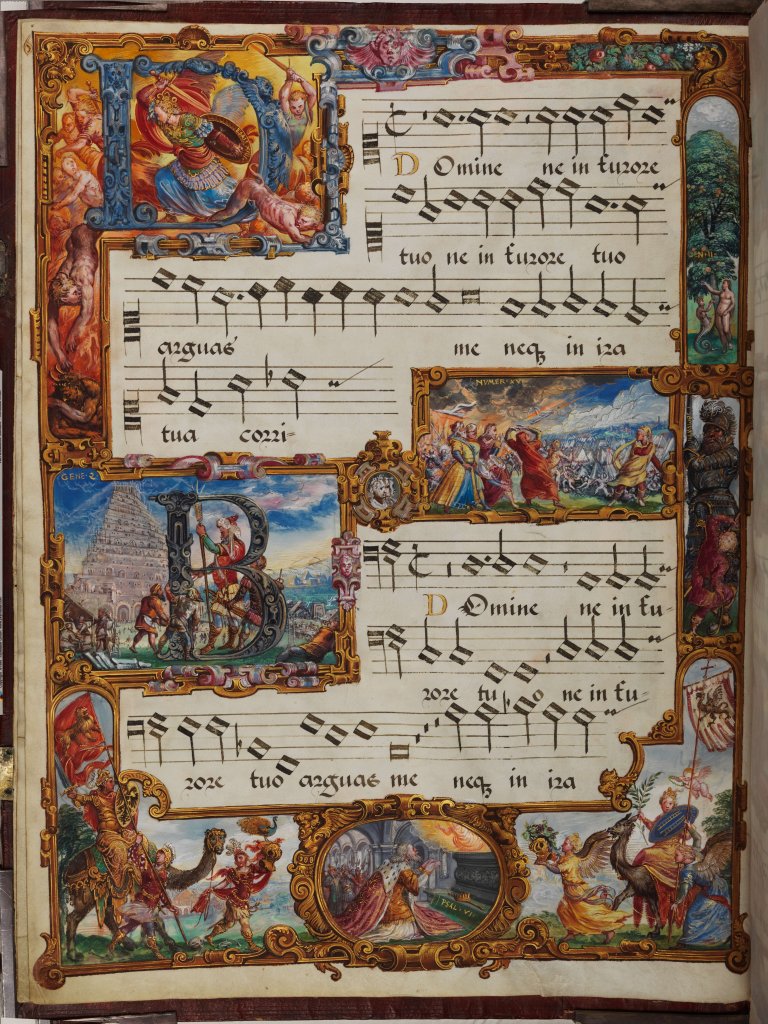 D
DOmine ne in furore
GEN·II·
tuo ne in furore tuo
arguas me neq in ira
tua corri-
NVMER·XVI
GENE·2
B
DOmine ne in fu-
rore tuo ne in fu-
rore tuo arguas me neq in ira
PSAL·VI·